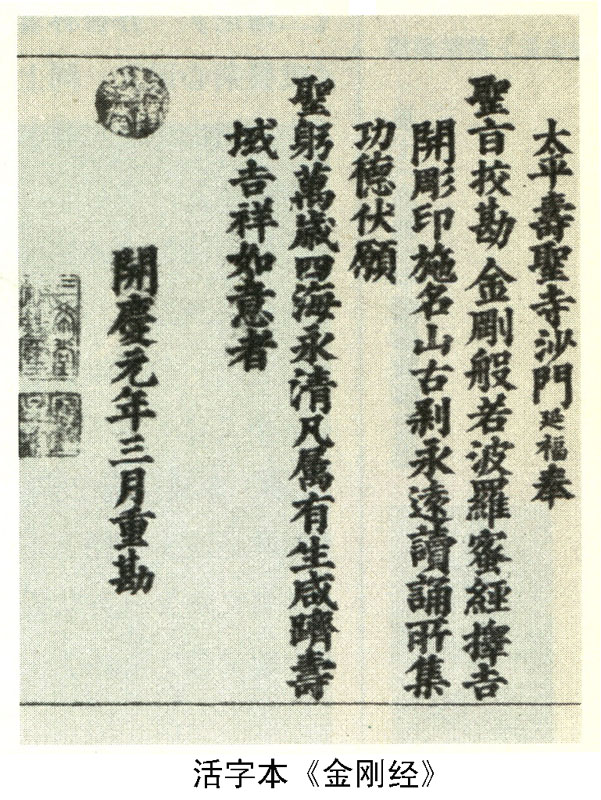 太平壽聖寺沙門延福奉
聖㫖挍勘金剛般若波羅蜜經擇吉
開彫印施名山古剎永遠讀誦所集
功德伏願
聖躬萬歲四海永清凡厲有生咸躋壽
域吉祥如意者
開慶元年三月重勘
活字本《金刚经》